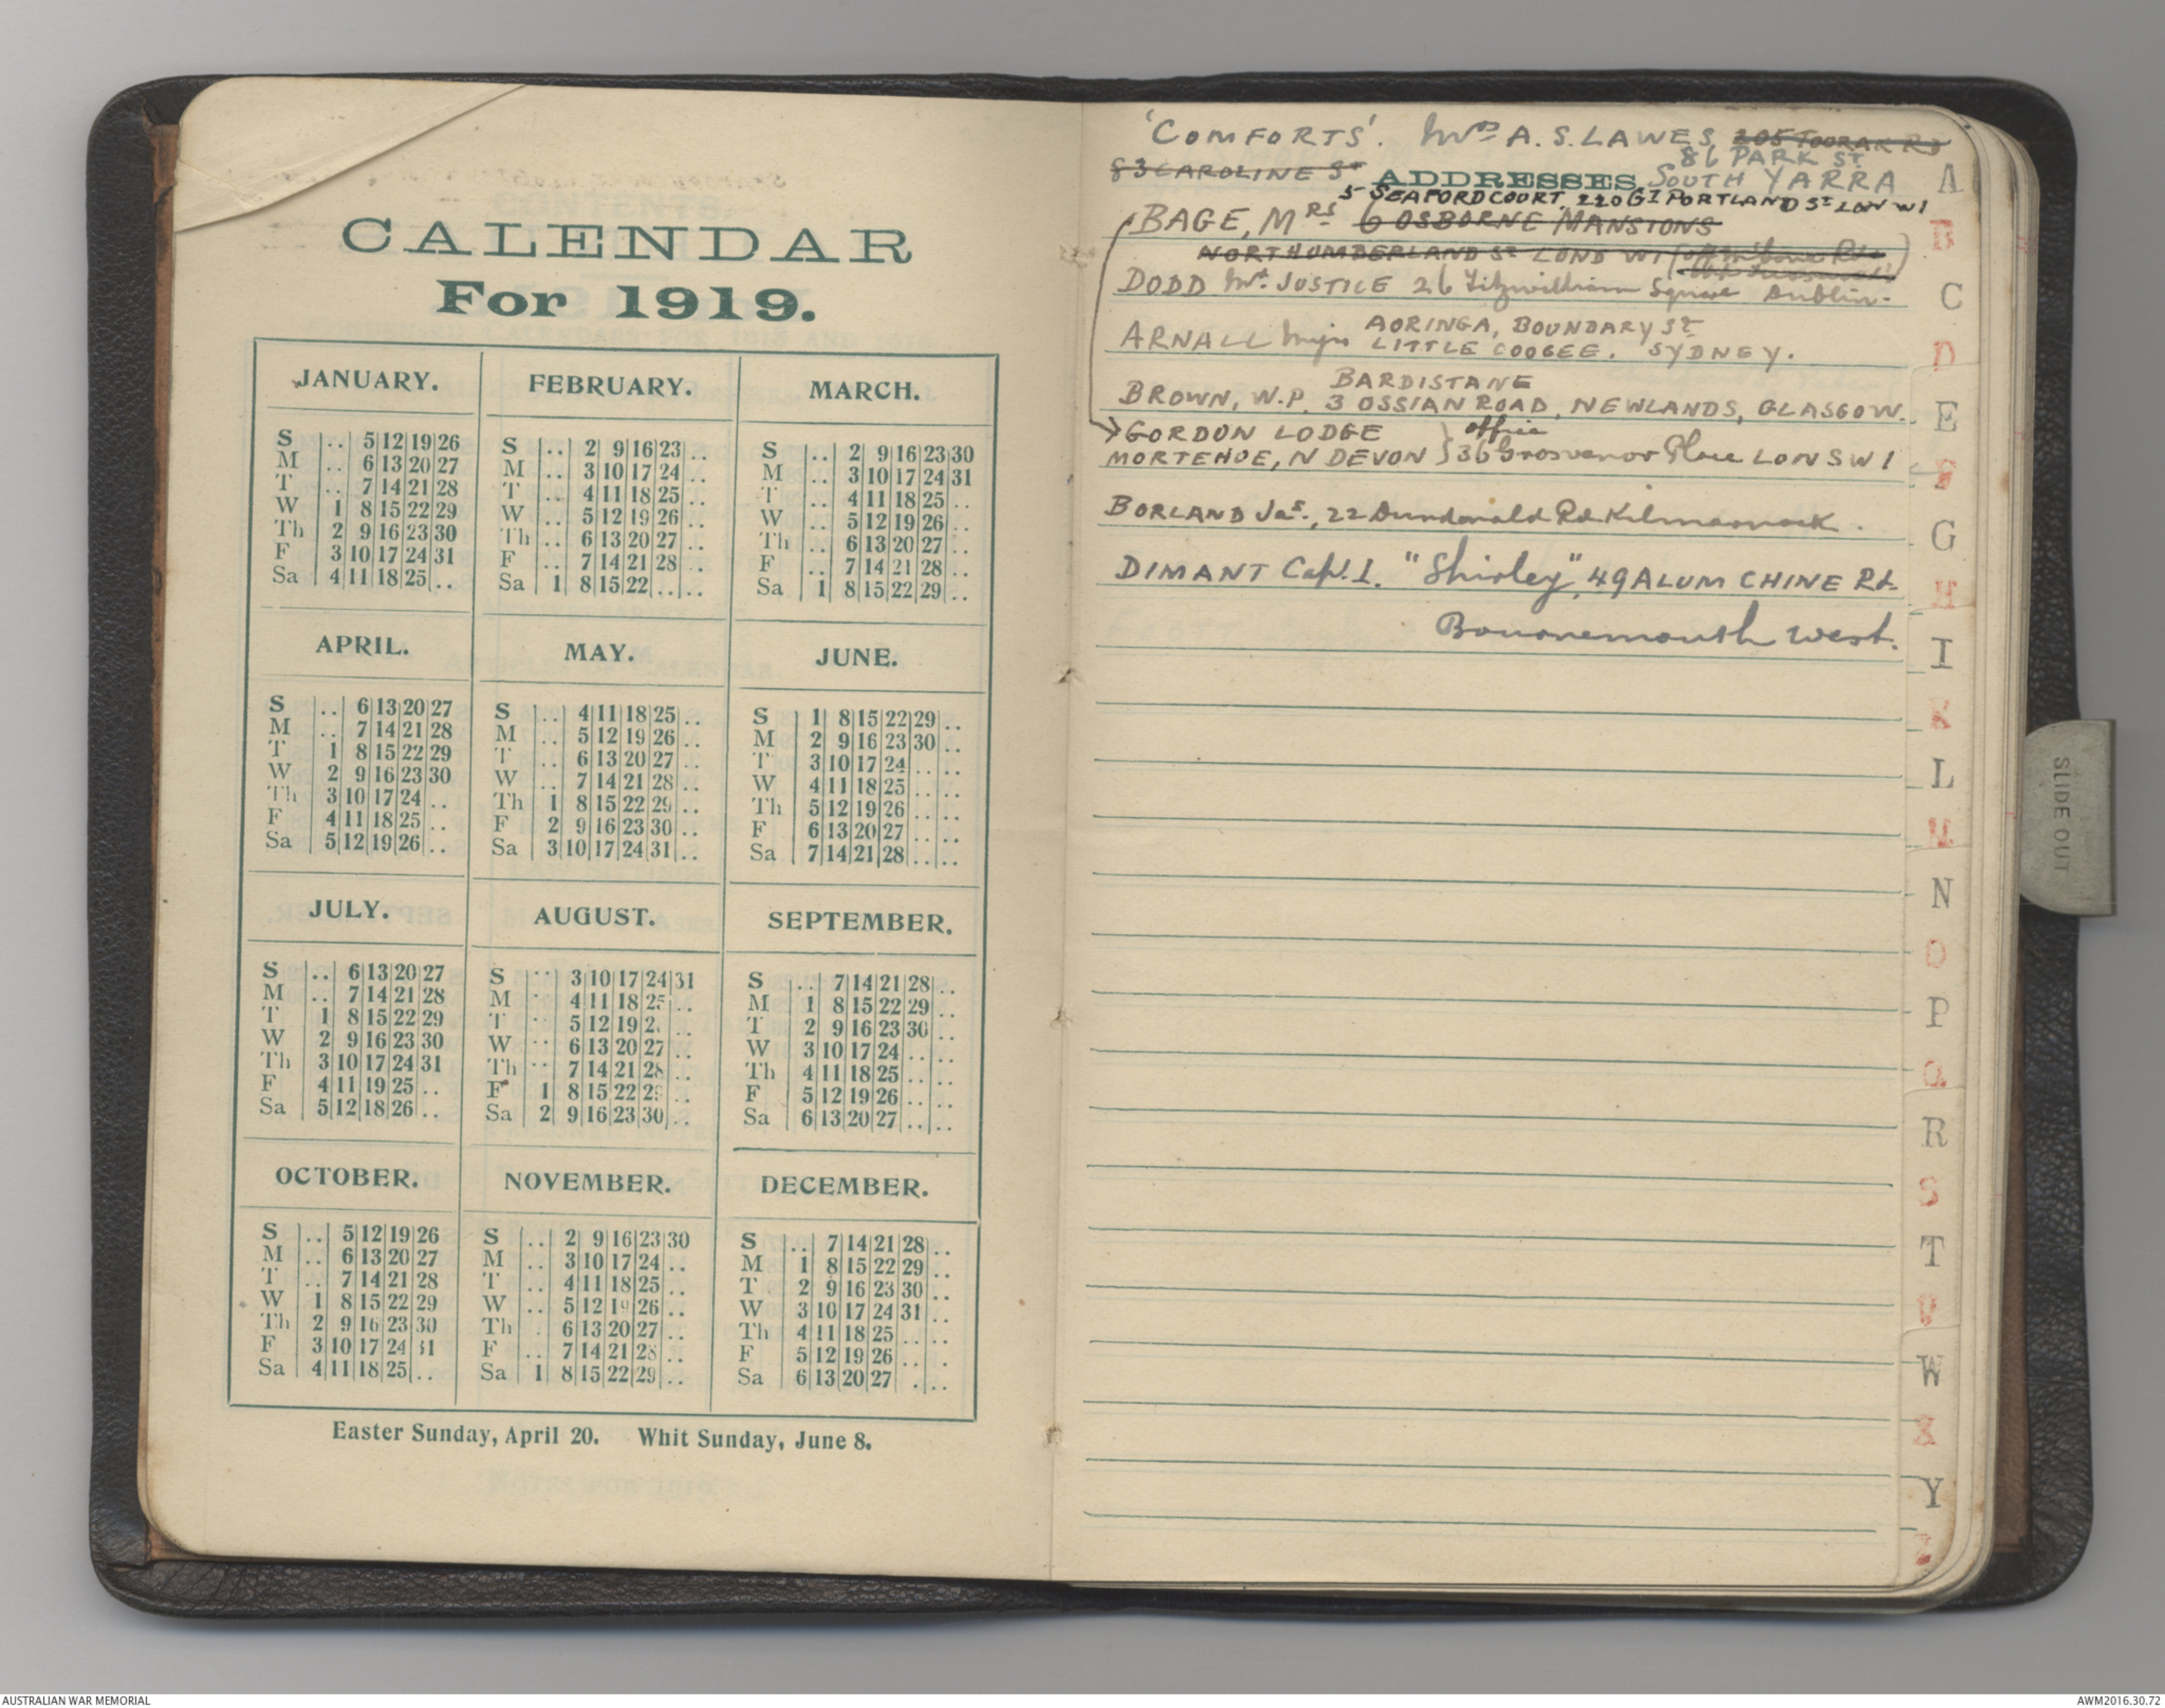 CALENDAR
For 1919.
JANUARY.
S .. 5 12 19 26
M .. 6 13 20 27
T .. 7 14 21 28
W 1 8 15 22 29
Th 2 9 16 23 30
F 3 10 17 24 31
Sa 4 11 18 25 ..
FEBRUARY.
S .. 2 9 16 23 ..
M .. 3 10 17 24 ..
T .. 4 11 18 25 ..
W .. 5 12 19 26 ..
Th .. 6 13 20 27 ..
F .. 7 14 21 28 ..
Sa 1 8 15 22 .. ..
MARCH.
S .. 2 9 16 23 30
M .. 3 10 17 24 31
T .. 4 11 18 25 ..
W .. 5 12 19 26 ..
Th .. 6 13 20 27 ..
F .. 7 14 21 28 ..
Sa 1 8 15 22 29 ..
APRIL.
S .. 6 13 20 27
M .. 7 14 21 28
T 1 8 15 22 29
W 2 9 16 23 30
Th 3 10 17 24 ..
F 4 11 18 25 ..
Sa 5 12 19 26 ..
MAY.
S .. 4 11 18 25 ..
M .. 5 12 19 26 ..
T .. 6 13 20 27 ..
W .. 7 14 21 28 ..
Th 1 8 15 22 29 ..
F 2 9 16 23 30 ..
Sa 3 10 17 24 31 ..
JUNE.
S 1 8 15 22 29 ..
M 2 9 16 23 30 ..
T 3 10 17 24 .. ..
W 4 11 18 25 .. ..
Th 5 12 19 26 .. ..
F 6 13 20 27 .. ..
Sa 7 14 21 28 .. ..
JULY.
S .. 6 13 20 27
M .. 7 14 21 28
T 1 8 15 22 29
W 2 9 16 23 30
Th 3 10 17 24 31
F 4 11 19 25 ..
Sa 5 12 18 26 ..
AUGUST.
S .. 3 10 17 24 31
M .. 4 11 18 25 ..
T .. 5 12 19 2. ..
W .. 6 13 20 27 ..
Th .. 7 14 21 28 ..
F 1 8 15 22 29 ..
Sa 2 9 16 23 30 ..
SEPTEMBER.
S .. 7 14 21 28 ..
M 1 8 15 22 29 ..
T 2 9 16 23 30 ..
W 3 10 17 24 .. ..
Th 4 11 18 25 .. ..
F 5 12 19 26 .. ..
Sa 6 13 20 27 .. ..
OCTOBER.
S .. 5 12 19 26
M .. 6 13 20 27
T .. 7 14 21 28
W 1 8 15 22 29
Th 2 9 16 23 30
F 3 10 17 24 31
Sa 4 11 18 25 ..
NOVEMBER.
S .. 2 9 16 23 30
M .. 3 10 17 24 ..
T .. 4 11 18 25 ..
W .. 5 12 19 26 ..
Th . 6 13 20 27 ..
F .. 7 14 21 28 ..
Sa 1 8 15 22 29 ..
DECEMBER.
S .. 7 14 21 28 ..
M 1 8 15 22 29 ..
T 2 9 16 23 30 ..
W 3 10 17 24 31 ..
Th 4 11 18 25 .. ..
F 5 12 19 26 .. .
Sa 6 13 20 27 . ..
Easter Sunday, April 20. Whit Sunday, June 8.
'COMFORTS'. Mrs A. S. LAWES, 205 TOORAK RD
86 PARK ST.
83 CAROLINE ST ADDRESSES SOUTH YARRA
5 SEAFORD COURT, 220 GT PORTLAND ST LON W1
BAGE, MRS 6 OSBORNE MANSIONS
NORTHUMBERLAND ST LOND W1
DODD Mr. JUSTICE 26 Fitzwilliam Square Dublin.
AORINGA, BOUNDARY ST
ARNALL Major LITTLE COOGEE. SYDNEY.
BARDISTANE
BROWN, W.P. 3 OSSIAN ROAD, NEWLANDS, GLASGOW.
GORDON LODGE office
MORTEHOE, N DEVON } 36 Grosvenor Place LON SW1
BORLAND Jas., 22 Dundonald Rd. Kilmarnock.
DIMANT Capt. I. "Shirley", 49 ALUM CHINE Rd.
Bournemouth West.
A
B
C
D
E
F
G
H
I
K
L
M
N
O
P
Q
R
S
T
U
W
X
Y
Z
SLIDE OUT
AUSTRALIAN WAR MEMORIAL
AWM2016.30.72